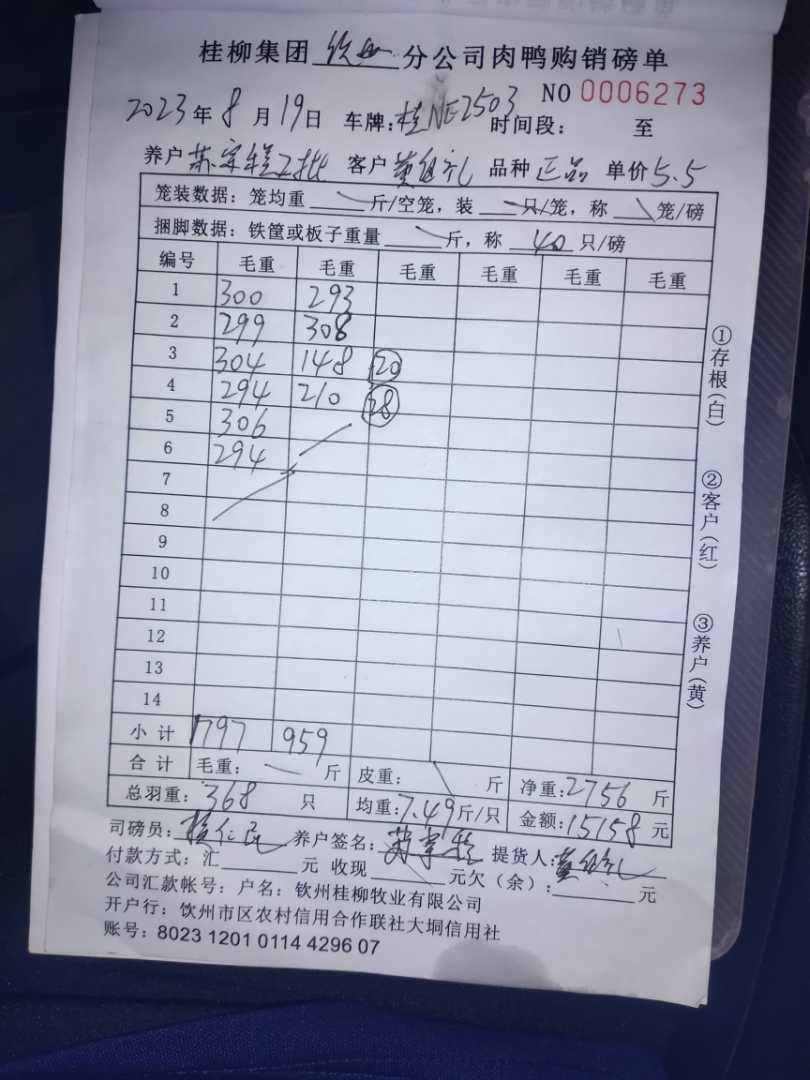 桂柳集团 钦州 分公司肉鸭购销磅单
NO 0006273
2023年8月19日 车牌:桂NE2503 时间段: 至
养户 苏 客户 黄 礼 品种 正品 单价5.5
笼装数据: 笼均重 斤/空笼, 装 只/笼, 称 笼/磅
捆脚数据: 铁筐或板子重量 斤, 称 40 只/磅
编号 毛重 毛重 毛重 毛重 毛重 毛重
1 300 293
2 299 308
3 304 148 20
4 294 210 28
5 306
6 294
7
8
9
10
11
12
13
14
小计 1797 959
合计 毛重: 斤 皮重: 斤 净重:2756 斤
总羽重: 368 只 均重:7.49斤/只 金额:15158元
司磅员: 仁民 养户签名: 苏 提货人: 黄 礼
付款方式: 汇 元 收现 元欠(余): 元
公司汇款帐号: 户名: 钦州桂柳牧业有限公司
开户行: 钦州市区农村信用合作联社大垌信用社
账号: 8023 1201 0114 4296 07
①存根(白)
②客户(红)
③养户(黄)